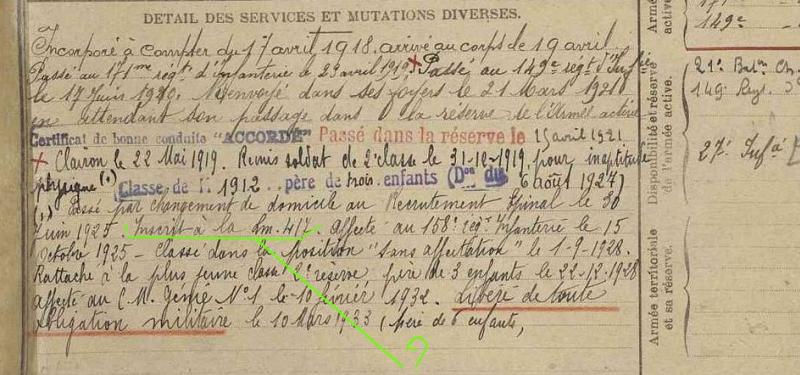 DETAIL DES SERVICES ET MUTATIONS DIVERSES.
Incorporé à compter du 17 avril 1918. arrivé au corps de 19 avril.
Passé au 171me régt d'Infanterie le 23 avril 1919. + Passé au 149e régt d'Infie
le 17 Juin 1920. Renvoyé dans ses foyers le 21 Mars 1921
en attendant son passage dans la réserve de l'Armée active
Certificat de bonne conduite "ACCORDÉ" Passé dans la réserve le 15 avril 1921
+ Clairon le 22 Mai 1919. Remis soldat de 2e classe le 31-10-1919, pour inaptitude
physique (1) (Classe de 1912 père de trois enfants (Don du 6 août 1927)
(1) Passé par changement de domicile au Recrutement Epinal le 30
Juin 1925 Inscrit à la Sm. 417 affecté au 158e régt Infanterie le 15
Octobre 1925 - Classé dans la position "sans affectation" le 1-9-1928.
Rattaché à la plus jeune classe 2e reserve père de 3 enfants le 22-12-1928
affecté au C.M. Génie No 1 le 10 février 1932. Libéré de toute
obligation militaire le 10 Mars 1933 (père de 6 enfants,
?
Armée
active
149e
Disponibilité et réserve
de l'armée active.
21e Batn Ch.
149 Regt
27e Infie
Armée territoriale
et sa réserve.